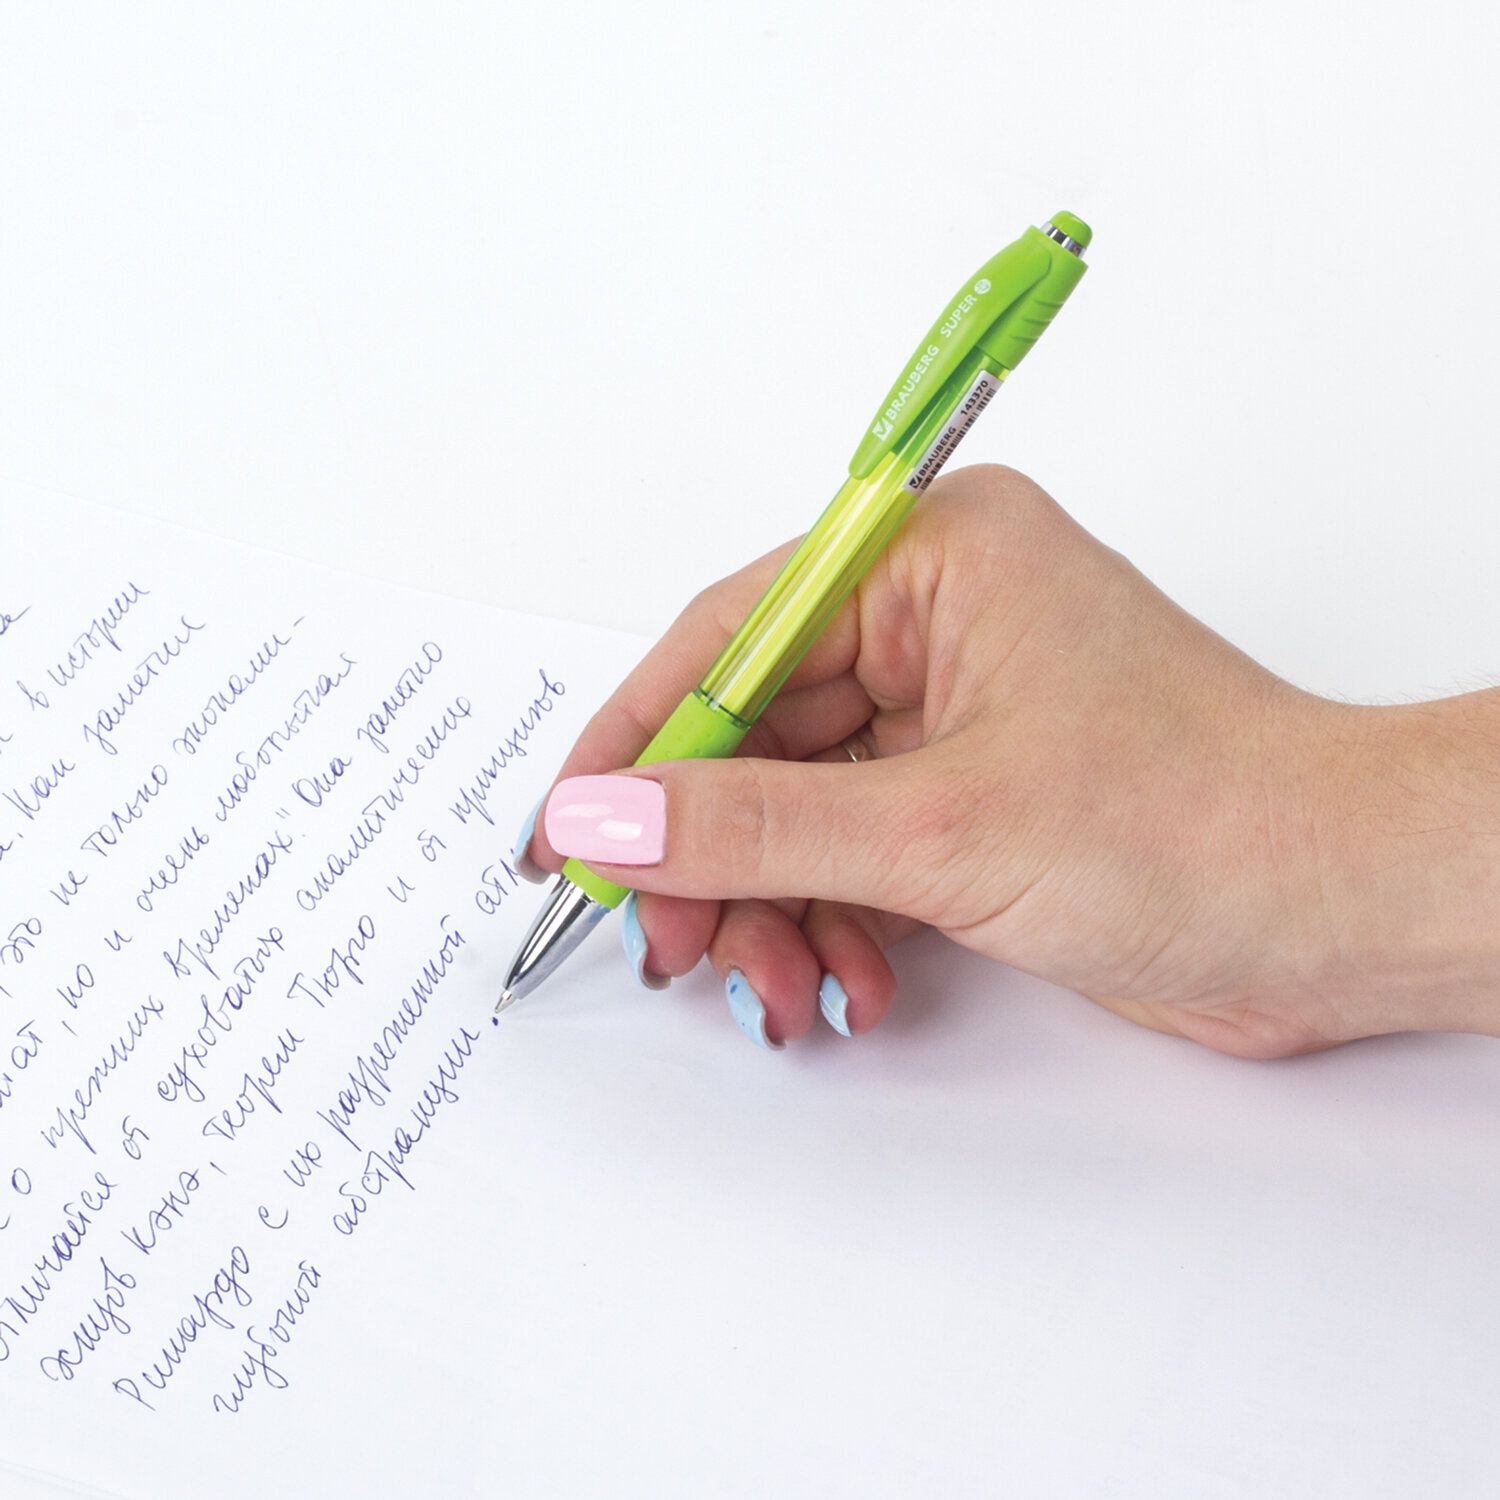 в истории
. Как заметил
, это не только экономи-
но и очень любопытная
о прежних временах". Она заметно
отличается от суховатых аналитических
эскизов Кэнэ, теорем Тюрго и от принципов
Рикардо с их разреженной атм
глубокой абстракции.
BRAUBERG SUPER
BRAUBERG 143370